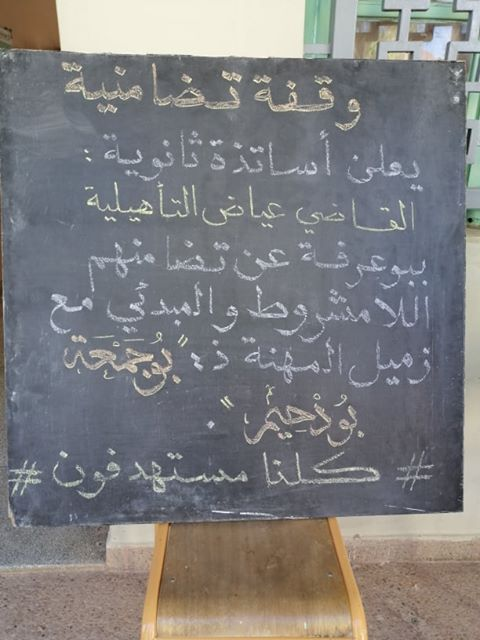 وقفة تضامنية
يعلن أساتذة ثانوية :
القاضي عياض التأهيلية
ببوعرفة عن تضامنهم
اللامشروط والمبدئي مع
زميل المهنة ذ: "بُوجَمْعَة
بُودْحِيمْ".
# كلنا مستهدفون #